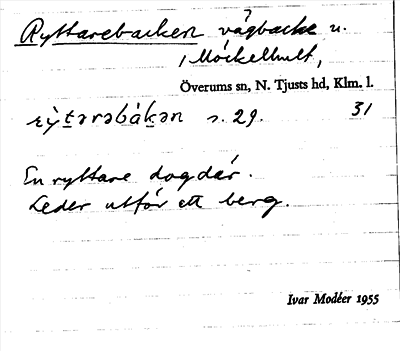 Ryttarebacken vägbacke u.
i Möckelhult,
Överums sn, N. Tjusts hd, Klm. l.
s. 29. 31
En ryttare dog där.
Leder utför ett berg.
Ivar Modéer 1955